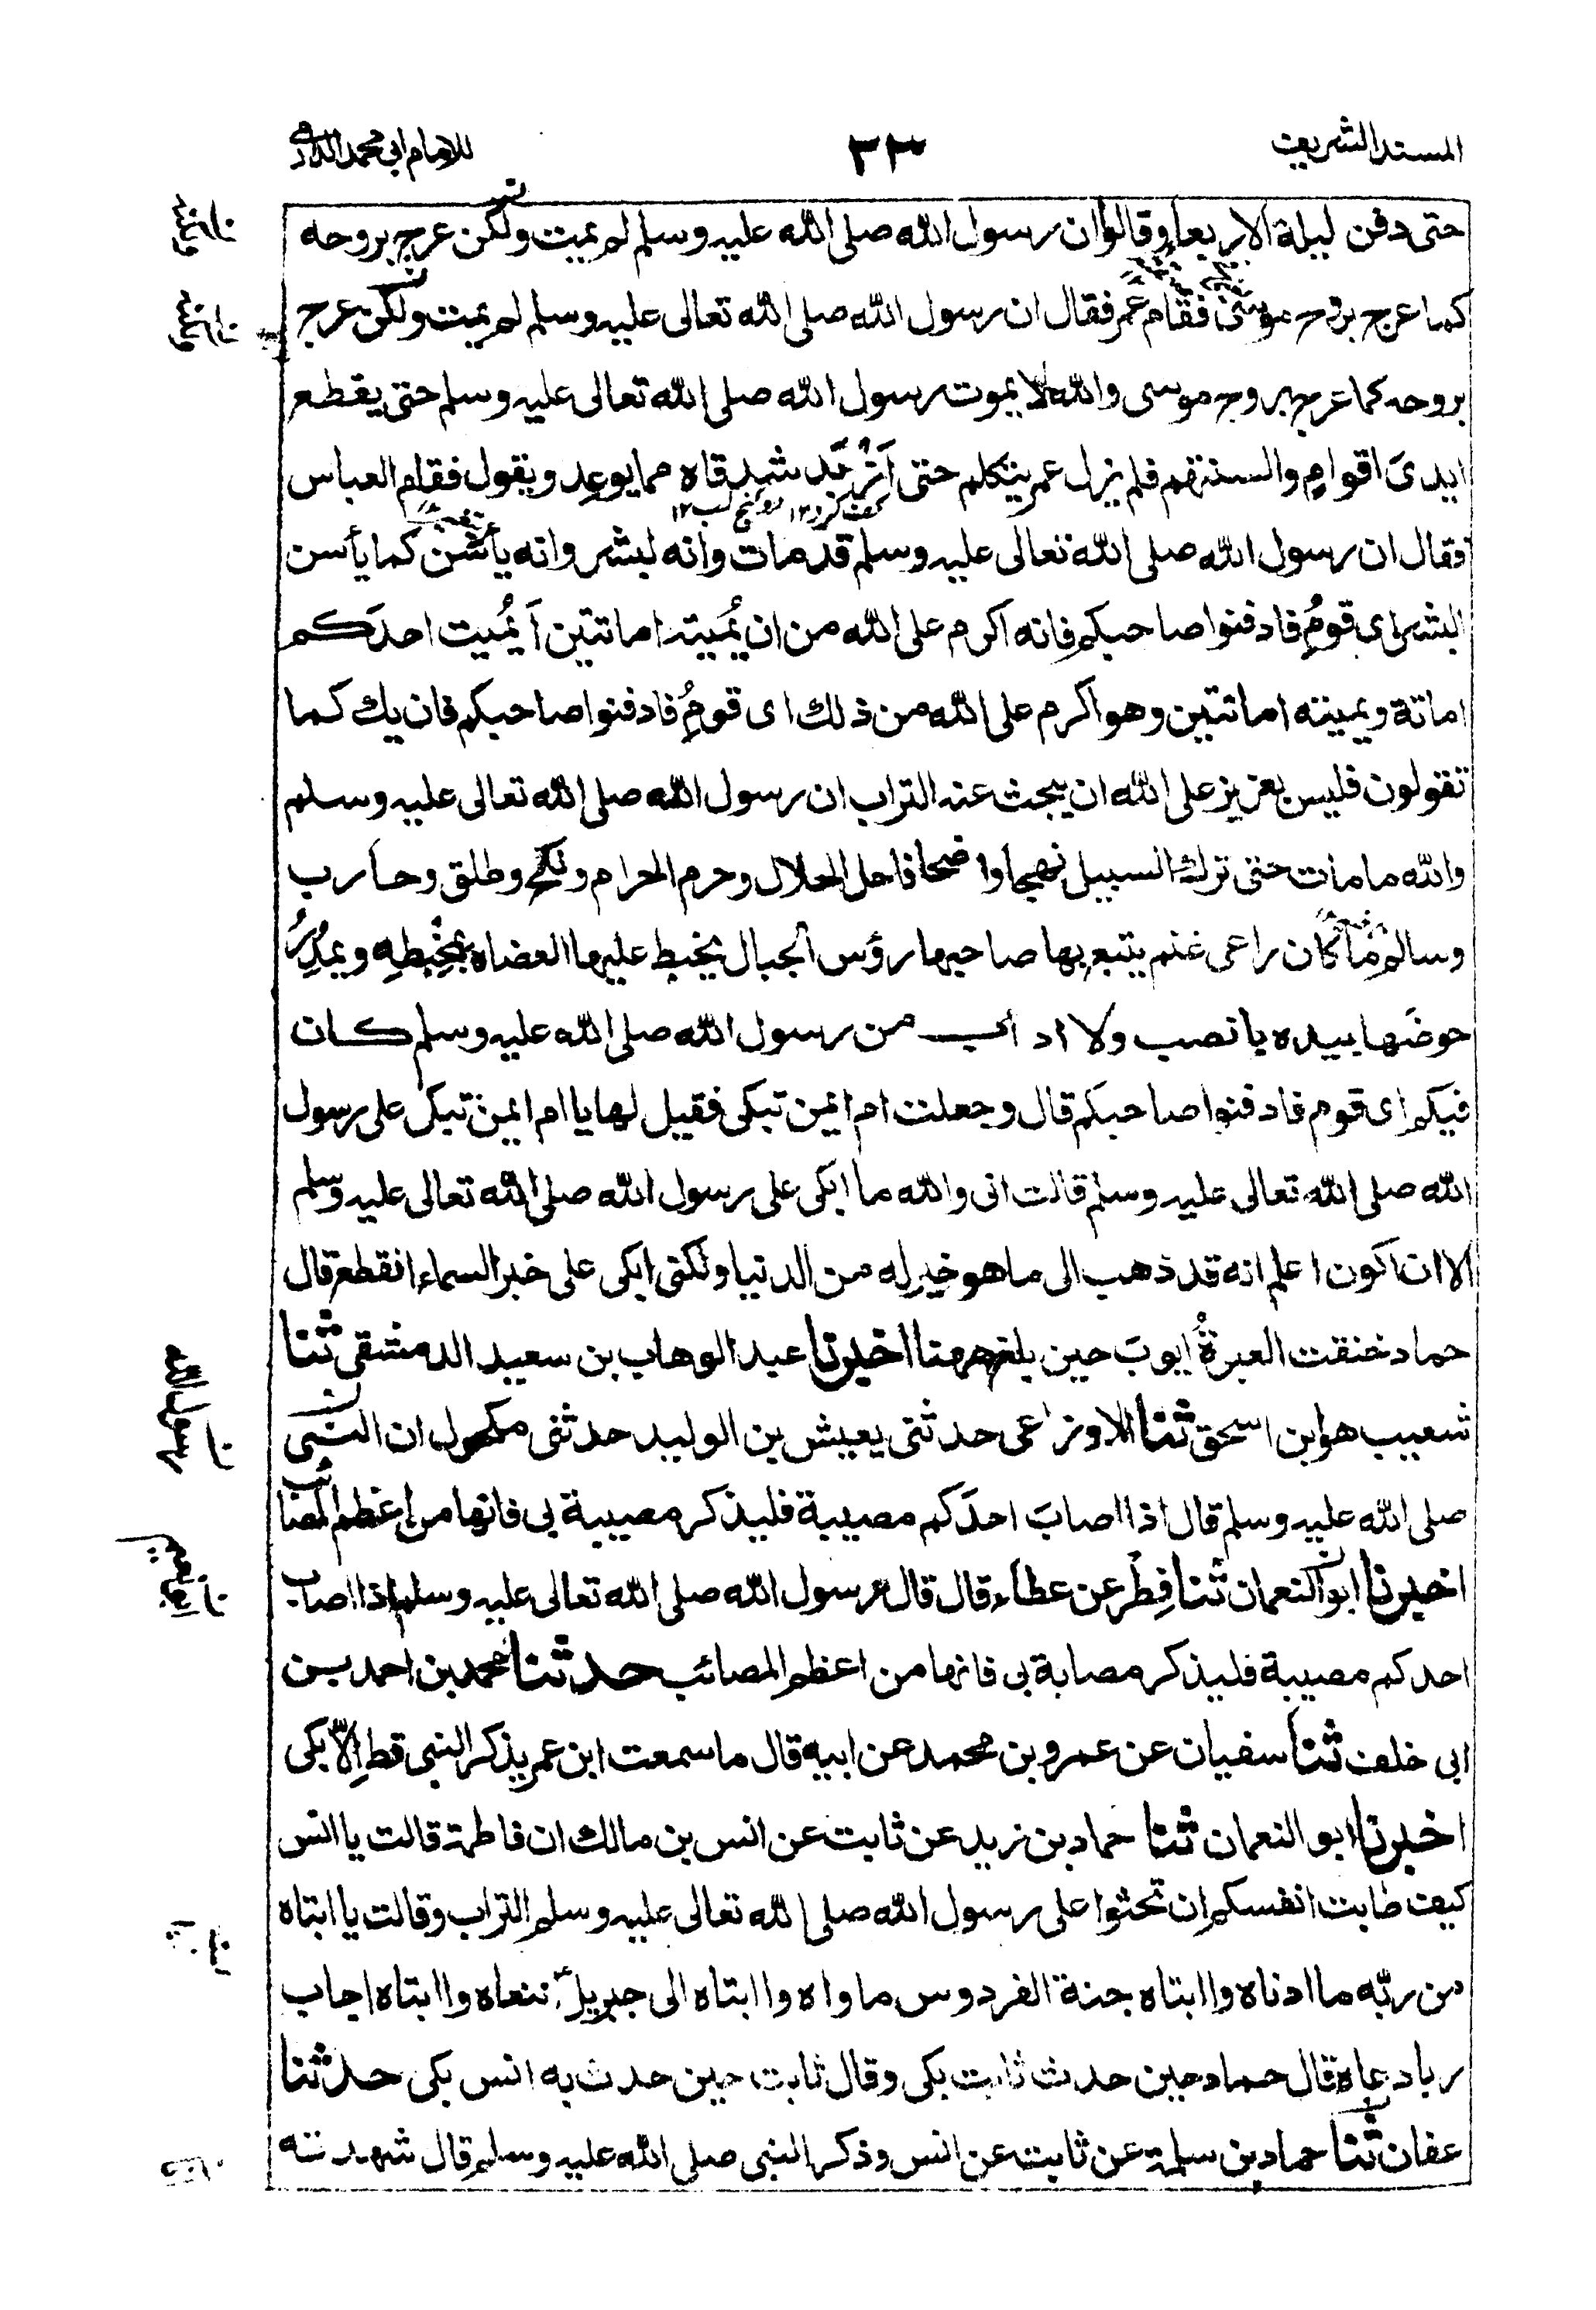 المسند الشريف ٣٣ للامام ابى محمد الدارمى
حتى دفن ليلة الاربعاء وقالوا ان رسول الله صلى الله عليه وسلم لم يمت ولكن عرج بروحه
كما عرج بروح موسى فقام عمر فقال ان رسول الله صلى الله تعالى عليه وسلم لم يمت ولكن عرج
بروحه كما عرج بروح موسى والله لا يموت رسول الله صلى الله تعالى عليه وسلم حتى يقطع
ايدىَ اقوامٍ والسنتهم فلم يزل عمر يتكلم حتى ازبد شدقاه مما يوعد ويقول فقام العباس
فقال ان رسول الله صلى الله تعالى عليه وسلم قد مات وانه لبشر وانه يأسن كما يأسن
البشر اى قومِ فادفنوا صاحبكم فانه اكرم على الله من ان يُميته اماتتين أيُميت احدَكم
اماتة ويميته اماتتين وهو اكرم على الله من ذلك اى قومِ فادفنوا صاحبكم فان يك كما
تقولون فليس بعزيز على الله ان يبحث عنه التراب ان رسول الله صلى الله تعالى عليه وسلم
والله ما مات حتى ترك السبيل نهجا واضحا فاحل الحلال وحرم الحرام ونكح وطلق وحارب
وسالم ما كان راعى غنم يتبع بها صاحبها رؤس الجبال يخبط عليها العضاه بمِخْبطِه ويمدُر
حوضَها بيده يا نصب ولا ادأب من رسول الله صلى الله عليه وسلم كان
فيكم اى قوم فادفنوا صاحبكم قال وجعلت ام ايمن تبكى فقيل لها يا ام ايمن تبكى على رسول
الله صلى الله تعالى عليه وسلم قالت انى والله ما ابكى على رسول الله صلى الله تعالى عليه وسلم
الا ان اكون اعلم انه قد ذهب الى ما هو خير له من الدنيا ولكنى ابكى على خبر السماء انقطع قال
حماد خنقت العبرةُ ايوبَ حين بلغ ههنا اخبرنا عبد الوهاب بن سعيد الدمشقى ثنا
شعيب هو ابن اسحق ثنا الاوزاعى حدثنى يعيش بن الوليد حدثنى مكحول ان النبى
صلى الله عليه وسلم قال اذا اصابَ احدَكم مصيبة فليذكر مصيبة بى فانها من اعظم المصائب
اخبرنا ابو النعمان ثنا فِطْر عن عطاء قال قال رسول الله صلى الله تعالى عليه وسلم اذا اصاب
احدكم مصيبة فليذكر مصابة بى فانها من اعظم المصائب حدثنا محمد بن احمد بن
ابى خلف ثنا سفيان عن عمرو بن محمد عن ابيه قال ما سمعت ابن عمر يذكر النبى قط اِلّا بكى
اخبرنا ابو النعمان ثنا حماد بن زيد عن ثابت عن انس بن مالك ان فاطمة قالت يا انس
كيف طابت انفسكم ان تحثوا على رسول الله صلى الله تعالى عليه وسلم التراب وقالت يا ابتاه
من ربّه ما ادناه وا ابتاه جنة الفردوس ماواه وا ابتاه الى جبريل ننعاه وا ابتاه اجاب
ربا دعاه قال حماد حين حدث ثابت بكى وقال ثابت حين حدث به انس بكى حدثنا
عفان ثنا حماد بن سلمة عن ثابت عن انس وذكر النبى صلى الله عليه وسلم قال شهدته
ن رسول الله
ن ابو نعيم